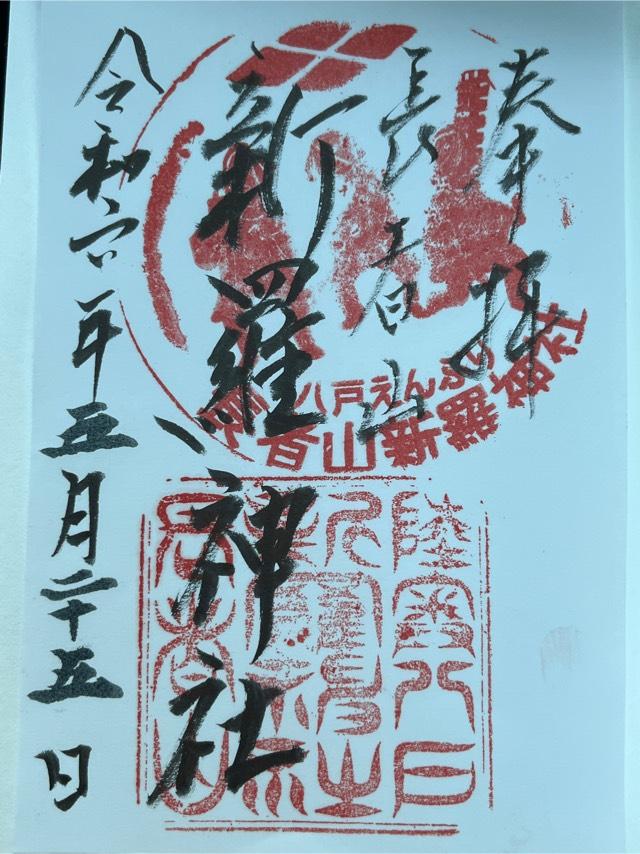 奉拝
長者山
新羅神社
令和六年五月二十五日
八戸えんぶり
長者山新羅神社
陸奥八戸
新羅神社
長者山